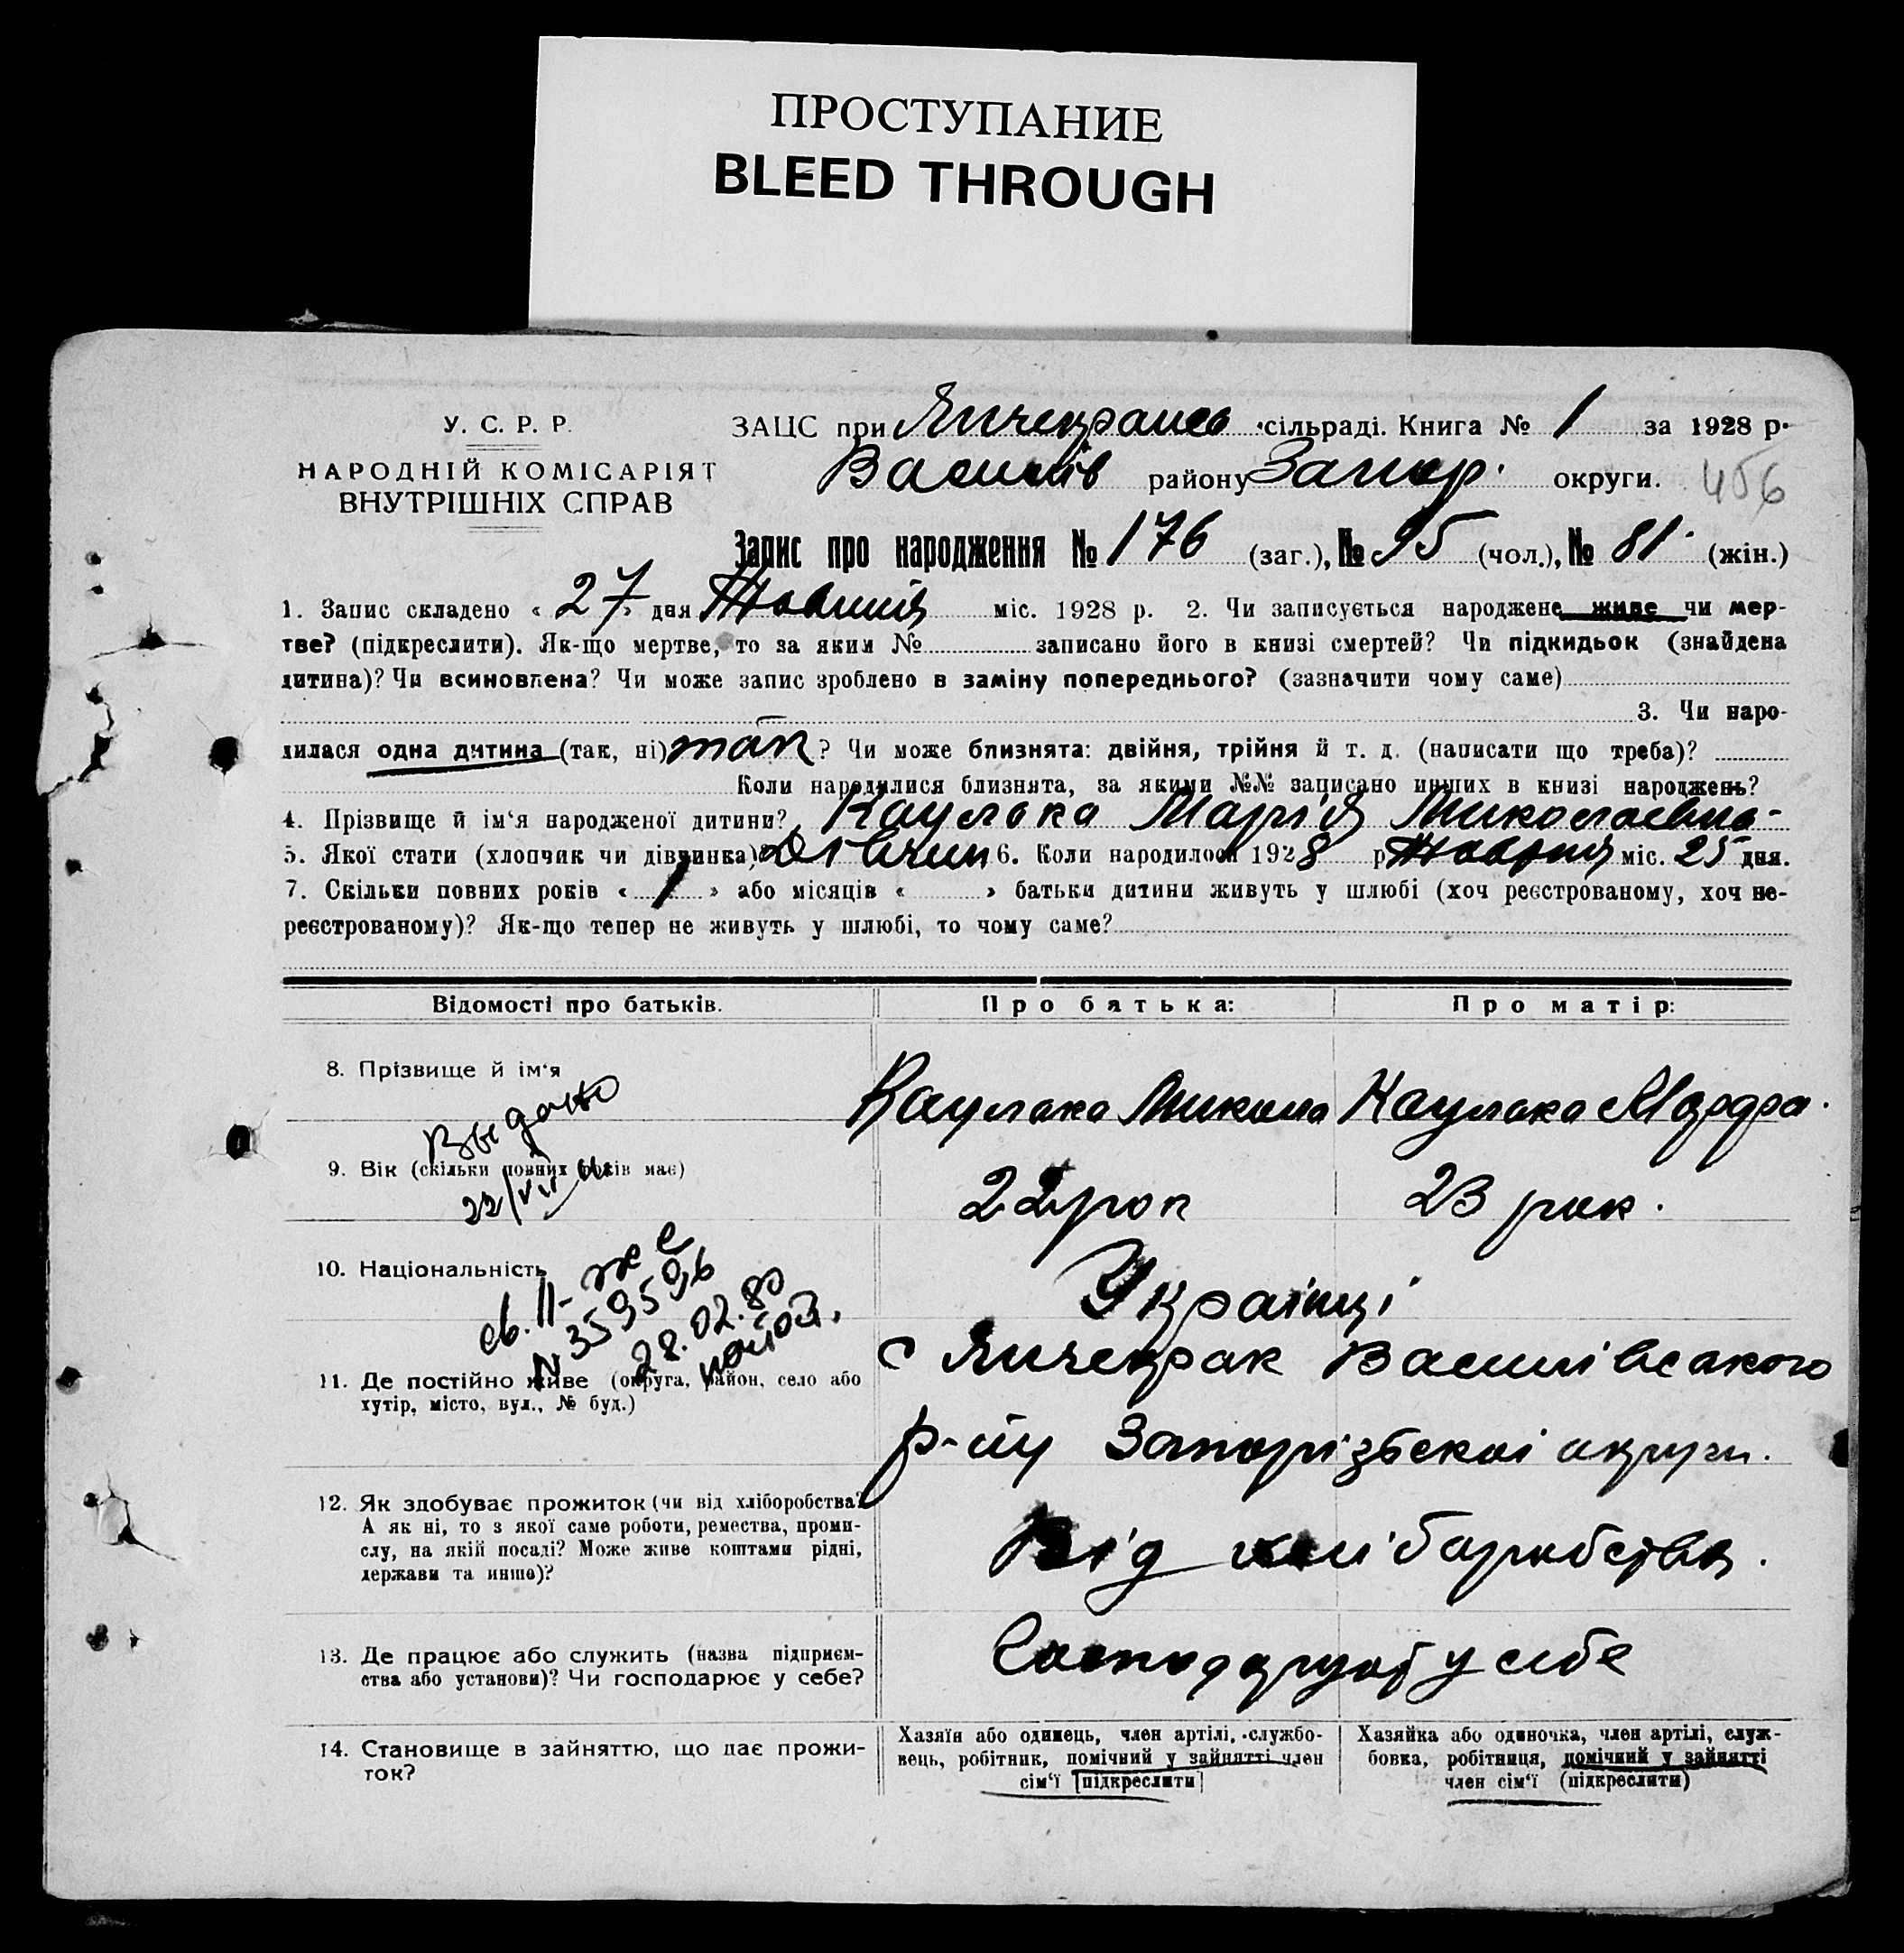 ПРОСТУПАНИЕ
BLEED THROUGH
У. С. Р. Р.
НАРОДНІЙ КОМІСАРІЯТ
ВНУТРІШНІХ СПРАВ
ЗАЦС при Янчекраксь сільраді. Книга № 1 за 1928 р.
Василів району Запор. округи. 456
Запис про народження № 176 (заг.), № 95 (чол.), № 81 (жін.)
1. Запис складено « 27 » дня Жовтня міс. 1928 р. 2. Чи записується народжене живе чи мер-
тве? (підкреслити). Як-що мертве, то за яким № записано його в книзі смертей? Чи підкидьок (знайдена
дитина)? Чи всиновлена? Чи може запис зроблено в заміну попереднього? (зазначити чому саме)
3. Чи наро-
дилася одна дитина (так, ні) так ? Чи може близнята: двійня, трійня й т. д. (написати що треба)?
Коли народилися близнята, за якими №№ записано инших в книзі народжень?
4. Прізвище й ім'я народженої дитини? Каулька Марія Миколаевна
5. Якої стати (хлопчик чи дівчинка)? Дівчин 6. Коли народилося 1928 р Жовтня міс. 25 дня.
7. Скільки повних років « 1 » або місяців « » батьки дитини живуть у шлюбі (хоч реєстрованому, хоч не-
реєстрованому)? Як-що тепер не живуть у шлюбі, то чому саме?
Відомості про батьків. Про батька: Про матір:
8. Прізвище й ім'я
Каулька Микола Каулька Марфа.
Выдано
9. Вік (скільки повних років має)
22/VII
22 рок 23 рок.
10. Національність
Українці
св. II-же
№ 359596
28.02.80
11. Де постійно живе (округа, район, село або
хутір, місто, вул., № буд.)
с Янчекрак Василівсакого
р-ну Запорізьскоі округи.
12. Як здобуває прожиток (чи від хліборобства?
А як ні, то з якої саме роботи, ремества, проми-
слу, на якій посаді? Може живе коштами рідні,
держави та инше)?
Від хліборобства.
13. Де працює або служить (назва підприєм-
ства або установи)? Чи господарює у себе?
у себе
14. Становище в зайняттю, що дає прожи-
ток?
Хазяїн або одинець, член артілі, службо-
вець, робітник, помічний у зайнятті член
сім'ї (підкреслити)
Хазяйка або одиночка, член артілі, служ-
бовка, робітниця, помічний у зайнятті
член сім'ї (підкреслити)